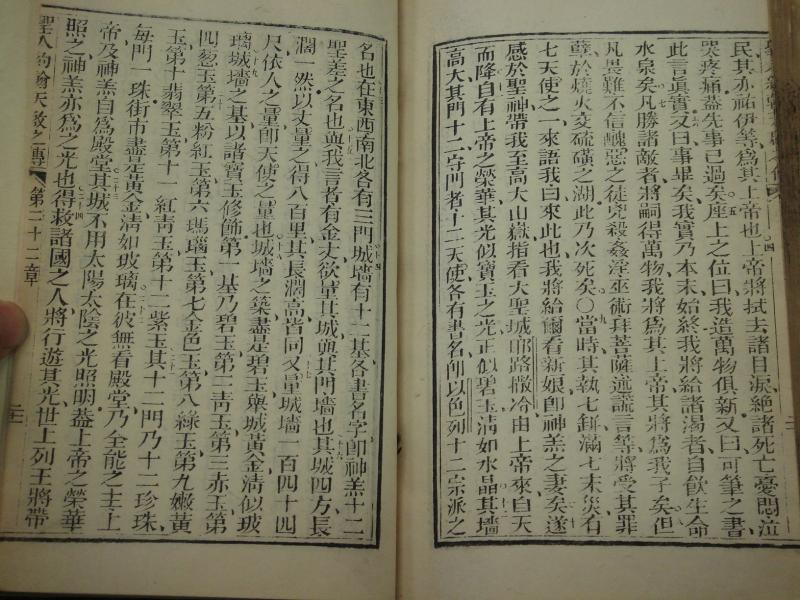 民其亦祐伊等爲其上帝也上帝將拭去諸目淚絕諸死亡憂悶泣
哭疼痛葢先事已過矣座上之位曰我造萬物俱新又曰可筆之書
此言眞實又曰事畢矣我實乃本末始終我將給諸渴者自飲生命
水泉矣凡勝諸敵者將嗣得萬物我將爲其上帝其將爲我子矣但
凡畏難不信醜惡之徒兇殺姦淫巫術拜菩薩並謊言等將受其罪
孽於燒火及硫磺之湖此乃次死矣○當時其執七鉼滿七末災有
七天使之一來語我曰來此也我將給爾看新娘卽神羔之妻矣遂
感於聖神帶我至高大山嶽指看大聖城耶路撒冷由上帝來自天
而降自有上帝之榮華其光似寶玉之光正似碧玉淸如水晶其墻
高大其門十二守門者十二天使各有書名卽以色列十二宗派之
名也在東西南北各有三門城墻有十二基各書名字卽神羔十二
聖差之名也與我言者有金丈欲量其城與其門墻也其城四方長
濶一然以丈量之得八百里其長濶高皆同又量城墻一百四十四
尺依人之量卽天使之量也城墻之築盡是碧玉與城黃金淸似玻
璃城墻之基以諸寶玉修飾第一基乃碧玉第二靑玉第三赤玉第
四葱玉第五粉紅玉第六瑪瑙玉第七金色玉第八綠玉第九嫩黃
玉第十翡翠玉第十一紅靑玉第十二紫玉其十二門乃十二珍珠
每門一珠街市盡是黃金淸如玻璃在彼無看殿堂乃全能之主上
帝及神羔自爲殿堂其城不用太陽太陰之光照明葢上帝之榮華
照之神羔亦爲之光也得救諸國之人將行遊其光世上列王將帶
聖人約翰天啟之傳 第二十二章